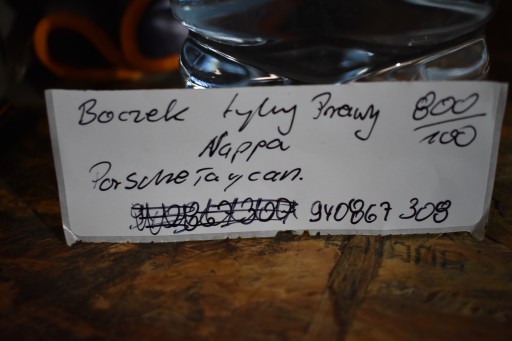 Boczek tylny Prawy 800/100
Nappa
Porsche Taycan.
940867 308